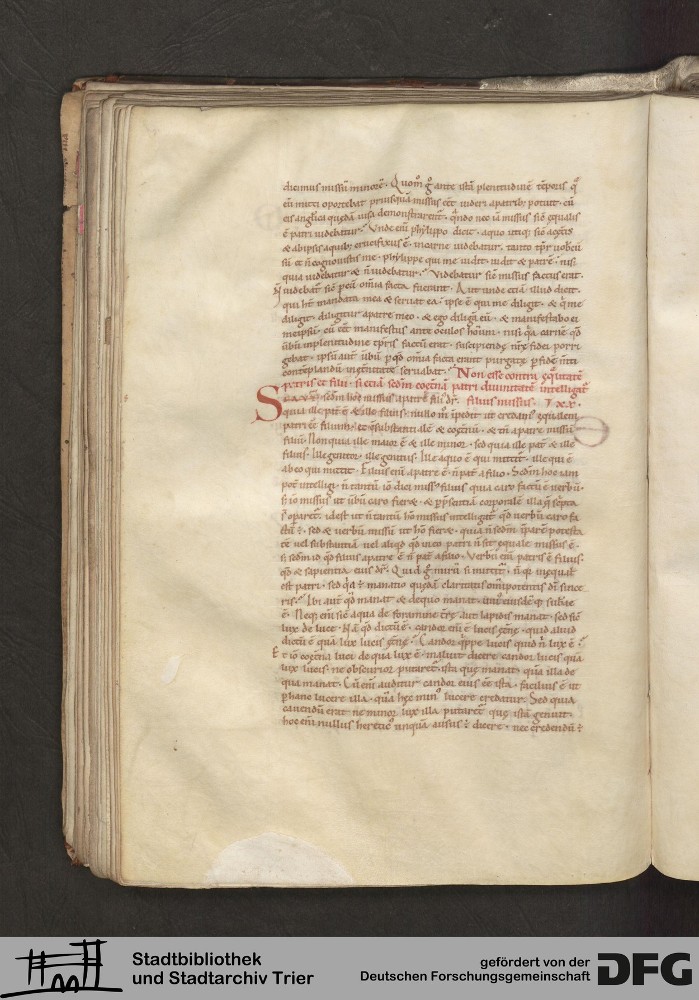 dicimus missū minorē. Quom̄ g̊ ante istā plenitudinē tēporis q̄
eū mitti oportebat priusquā missus eēt uideri a patrib; potuit. cū
eis anglica quedā uisa demonstrarent. qn̄do nec iā missus sic̄ equalis
ē patri uidebatur. Vnde enī phylippo dicit. a quo utiq; sic̄ a cęt̄is
& ab ipsis a quib; crucifixus ē in carne uidebatur. tanto tp̄r uobcū
sū et n̄ cognouistis me. phylippe qui me uidit. uidit & patrē. nisi
quia uidebatur & n̄ uidebatur. Videbatur sic̄ missus factus erat.
N̄ uidebat sic̄ p eū om̄ia facta fuerant. Aut unde etiā illud dicit.
qui ht̄ mandata mea & seruat ea. ipse ē qui me diligit. & q̄ me
diligit. diligitur a patre meo. & ego diligā eū. & manifestabo ei
meipsū. cū eēt manifestus ante oculos hom̄nū. nisi q̄a carnē qd̄
ūbū in plenitudine tp̄ris factū erat. suscipiendę nr̄ę fidei porri
gebat. ipsū aut̄ ūbū p qd̄ om̄ia facta erant purgatę p fidē m̄ti
contēplandū in et̄nitate seruabat. Non esse contra equitatē
patris et filii. si etiā sed̄m coęt̄nā patri diuinitatē intelligat̄
filius missus. I xx.
Si aut̄ sed̄m hoc missus a patre fili' dr̄.
quia ille pat̄ ē & ille filius. nullo m̄ īpedit ut credam' equalem
patri eē filium. et c̄substantialē & coęt̄nū. & tn̄ a patre missū
filiū. Non quia ille maior ē & ille minor. sed quia ille pat̄ & ille
filius. Ille genitor. ille genitus. Ille a quo ē qui mittit. ille qui ē
ab eo qui mittit. Filius enī a patre ē. n̄ pat̄ a filio. Sed̄m hoc iam
pot̄ intelligi. n̄ tantū iō dici miss' filius quia caro factū ē uerbū.
s; iō missus ut ūbū caro fieret. & p p̄sentiā corporalē illa q̄ sc̄pta
s̄ oparet̄. id est ut n̄ tantū ho missus intelligat̄ qd̄ uerbū caro fa
ctū ē. sed & uerbū missū ut ho fieret. quia n̄ sed̄m īparē potesta
tē uel substantiā uel aliqd̄ qd̄ in eo patri n̄ sit equale missus ē.
s; sed̄m id qd̄ filius a patre ē n̄ pat̄ a filio. Verbū enī patris ē filius.
qd̄ & sapientia eius dr̄. Quid g̊ mirū si mittit̄. n̄ q̄a inequalis
est patri. sed q̄a ē manatio quedā claritatis om̄ipotentis dī sincę
ris. Ibi aut̄ qd̄ manat & de quo manat. uni' eiusdē q; subst̄ę
ē. Neq; enī sic̄ aqua de foramine t̄rę aut lapidis manat. sed sic̄
lux de luce. Nā qd̄ dictū ē. candor enī ē lucis ęt̄nę. quid aliud
dictū ē quā lux lucis ęt̄nę. Candor q̄ppe lucis quid n̄ lux ē.
Et iō coęt̄na luci. de qua lux ē. maluit dicere candor lucis quā
lux lucis. ne obscurior putaret̄ ista quę manat. quā illa de
qua manat. Cū enī auditur candor eius eē ista. facilius ē ut
p hanc lucere illa. quā hęc min' lucere credatur. Sed quia
cauendū erat ne minor lux illa putaret̄ quę istā genuit.
hoc enī nullus heretic' unquā ausus ē dicere. nec credendū ē
Stadtbibliothek
und Stadtarchiv Trier
gefördert von der
Deutschen Forschungsgemeinschaft
DFG